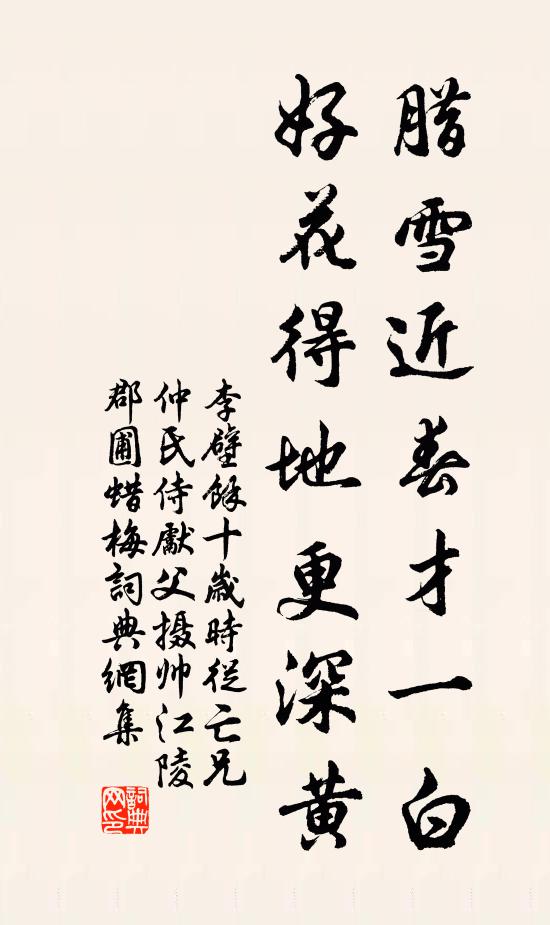 腊雪近春才一白
好花得地更深黄
李壁餘十歲時從亡兄
仲氏侍獻父摄帅江陵
郡圃蜡梅詞典網集
詞典
网印